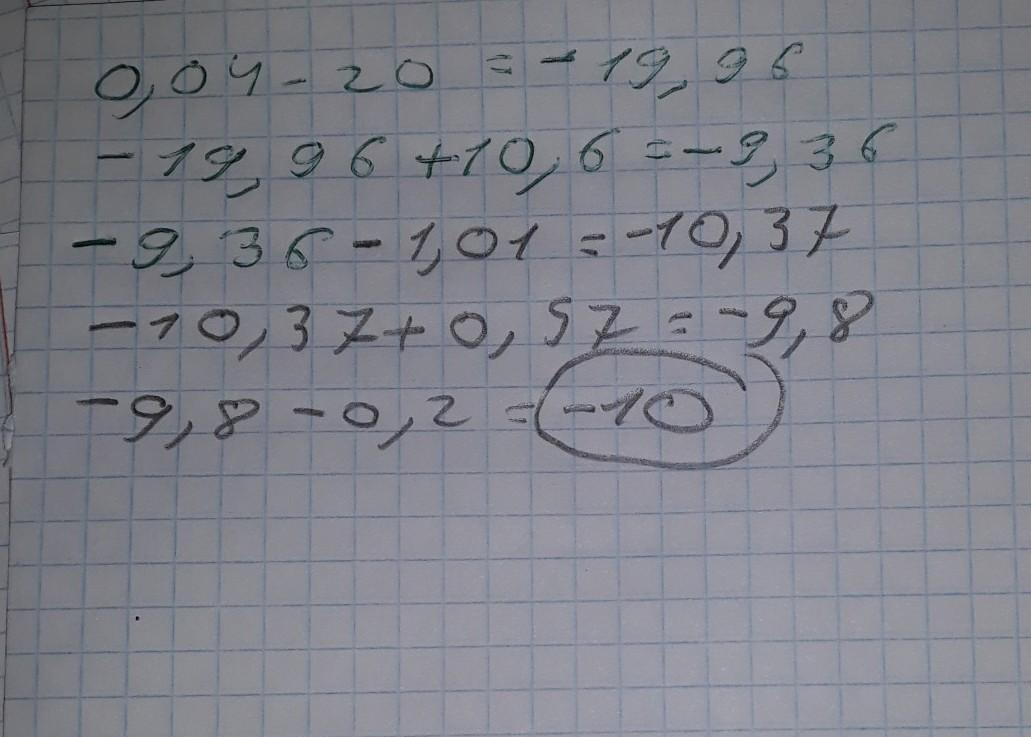 0,04 - 20 = -19,96
-19,96 + 10,6 = -9,36
-9,36 - 1,01 = -10,37
-10,37 + 0,57 = -9,8
-9,8 - 0,2 = -10